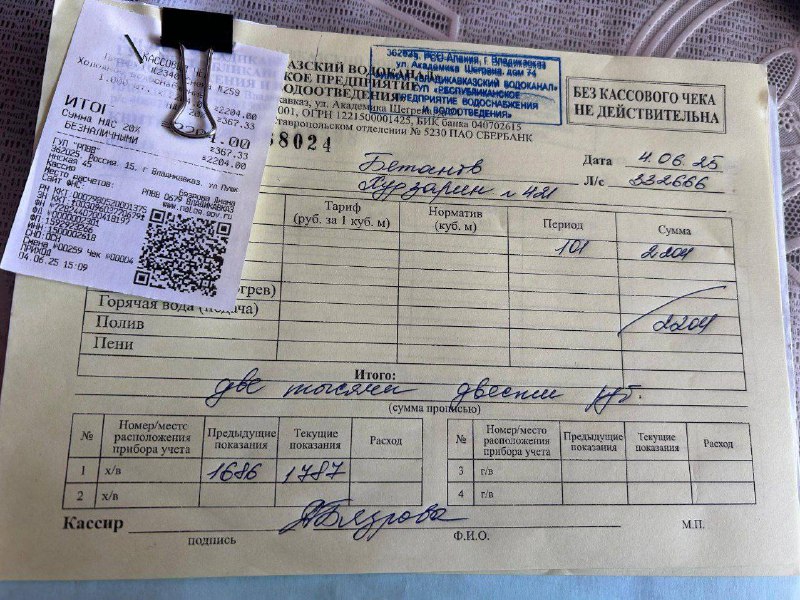 КАССОВЫЙ
№259
Холо
≥2204.00
≥367.33
ИТОГ
Сумма НДС 20%
БЕЗНАЛИЧНЫМИ
≥367.33
≥2204.00
ГУП "РПВВ"
362025, Россия, 15, г Владикавказ, ул
45
Кассир
Место расчетов:
Сайт ФНС:
www.nalog.gov.ru
ИНН:1500002618
СНО:ОСН
Смена №00259 Чек №00004
ПРИХОД
04.06.25 15:09
КАЗСКИЙ ВОДОКАНАЛ
СКОЕ ПРЕДПРИЯТИЕ
ВОДООТВЕДЕНИЯ
кавказ, ул. Академика Шегрена
ОГРН 1221500001425, БИК банка 040702615
Ставропольском отделении № 5230 ПАО СБЕРБАНК
362025, РСО-Алания, г. Владикавказ
ул. Академика Шегрена, дом 74
«ВЛАДИКАВКАЗСКИЙ ВОДОКАНАЛ»
ГУП «РЕСПУБЛИКАНСКОЕ
ПРЕДПРИЯТИЕ ВОДОСНАБЖЕНИЯ
И ВОДООТВЕДЕНИЯ»
БЕЗ КАССОВОГО ЧЕКА
НЕ ДЕЙСТВИТЕЛЬНА
8024
Дата 4.06.25
Л/с 332666
Тариф (руб. за 1 куб. м) Норматив (куб. м) Период Сумма
101 2204
огрев)
Горячая вода (подача)
Полив 2204
Пени
Итого:
две тысячи двести руб.
(сумма прописью)
№ Номер/место расположения прибора учета Предыдущие показания Текущие показания Расход № Номер/место расположения прибора учета Предыдущие показания Текущие показания Расход
1 х/в 1686 1787 3 г/в
2 х/в 4 г/в
Кассир Бязрова
подпись Ф.И.О. М.П.